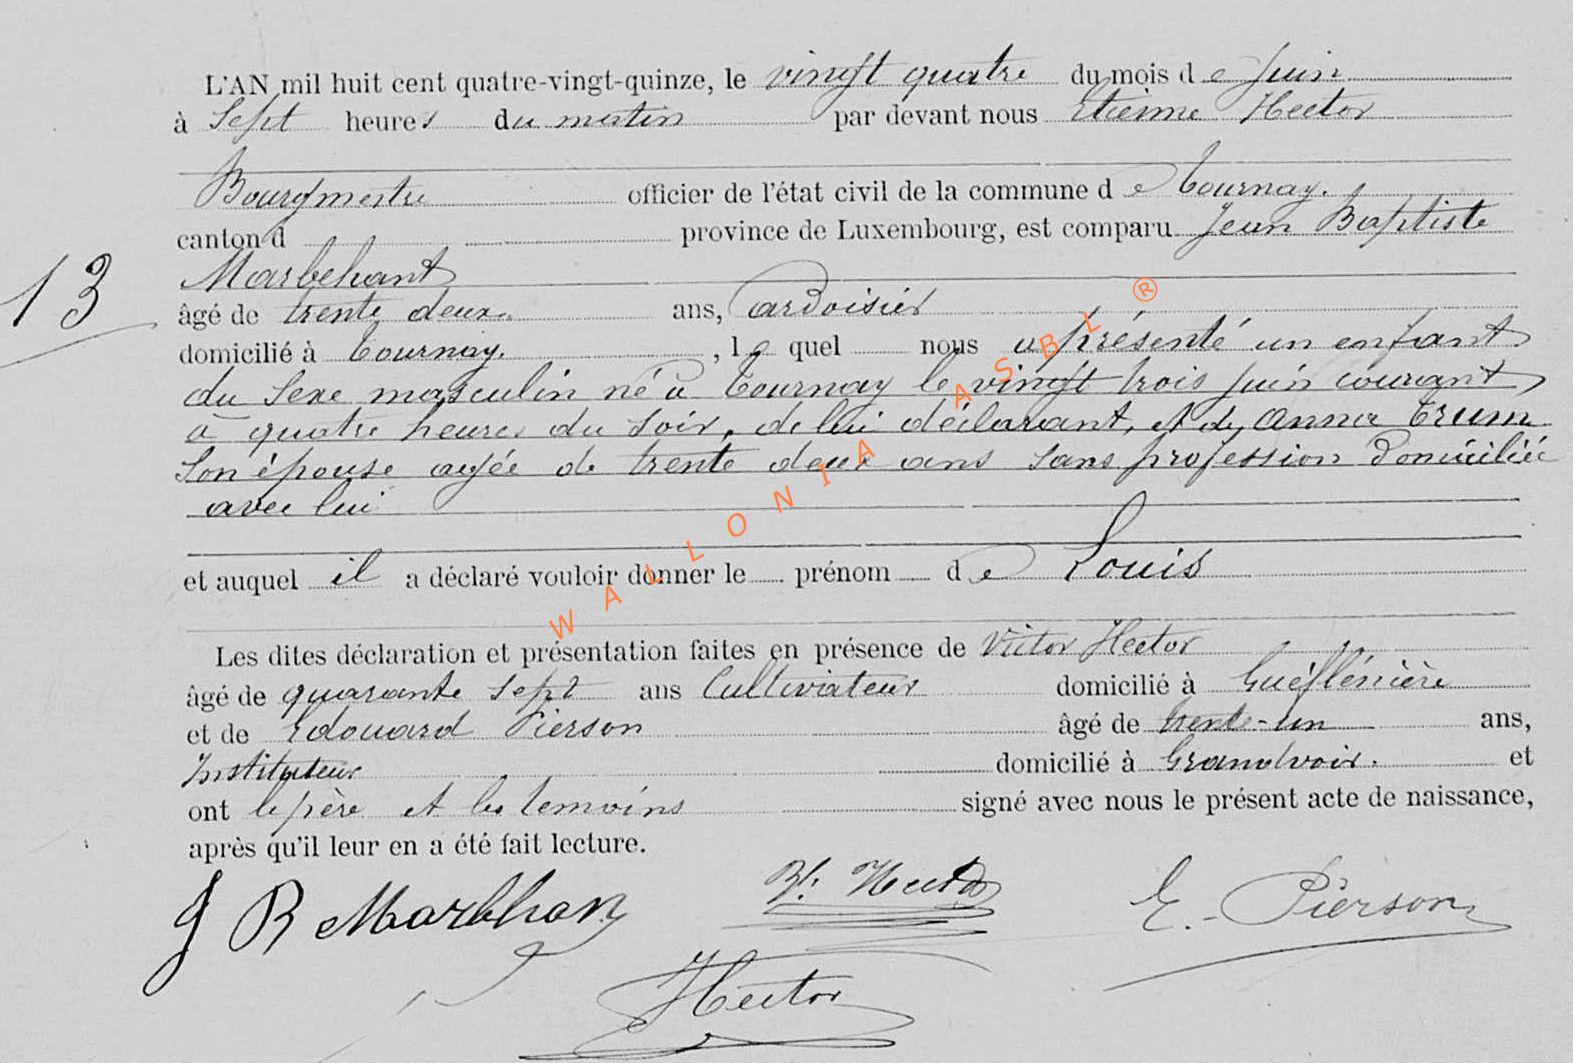 L'AN mil huit cent quatre-vingt-quinze, le vingt quatre du mois de juin
à Sept heures du matin par devant nous Etienne Hector
Bourgmestre officier de l'état civil de la commune de Tournay.
canton d province de Luxembourg, est comparu Jean Baptiste
13
Marbehant
âgé de trente deux ans, ardoisier
domicilié à Tournay. , le quel nous a présenté un enfant
du sexe masculin né à Tournay le vingt trois juin courant,
à quatre heures du soir, de lui déclarant, et de Anna Trum
Son épouse agée de trente deux ans sans profession domiciliée
avec lui
et auquel il a déclaré vouloir donner le prénom de Louis
Les dites déclaration et présentation faites en présence de Victor Hector
âgé de quarante sept ans Cultivateur domicilié à
et de Edouard Pierson âgé de trente-un ans,
Instituteur domicilié à Grandvoir. et
ont le père et les temoins signé avec nous le présent acte de naissance,
après qu'il leur en a été fait lecture.
J B Marbhan
V. Hector
E. Pierson
Hector
WALLONIA ASBL ®